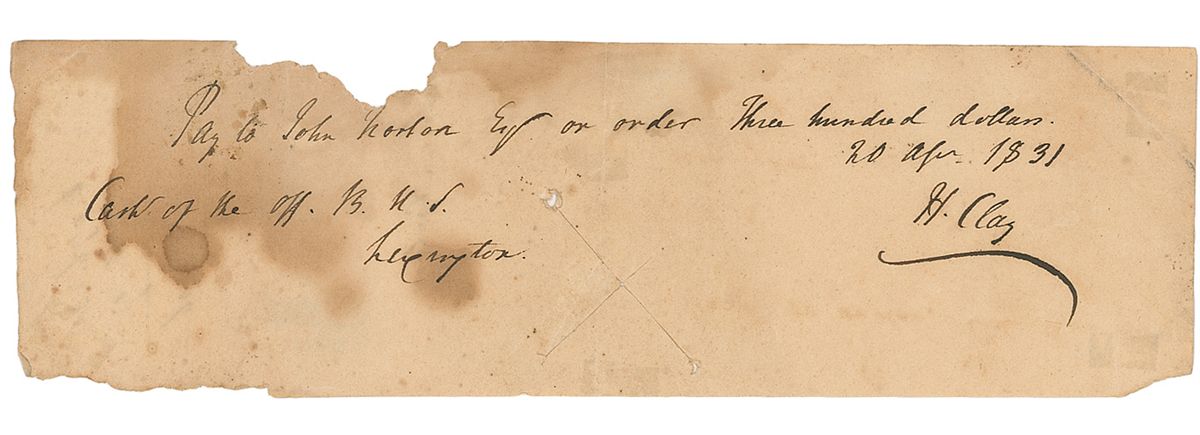 Pay to John Norton Esqr. or order Three hundred dollars.
20 Apr. 1831
Cashr. of the Off. B. U. S.
H. Clay
Lexington.